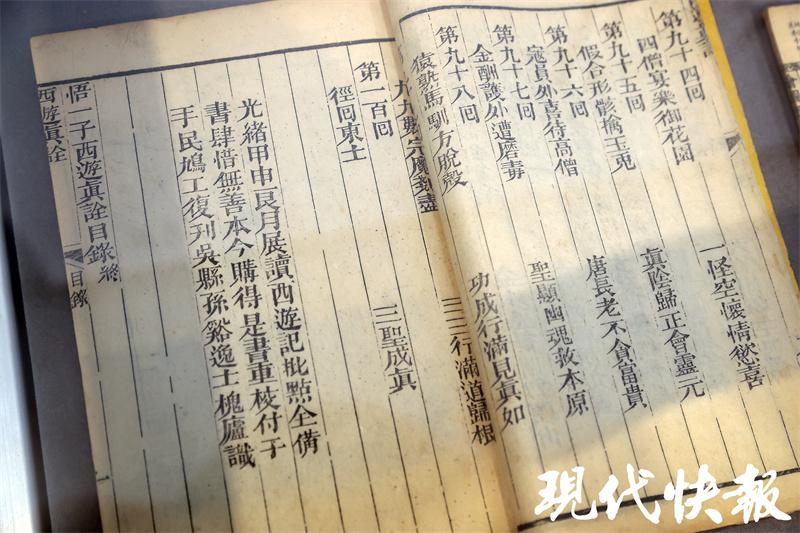 第九十四回
四僧宴樂御花園　一怪空懷情慾喜
第九十五回
假合形骸擒玉兎　眞陰歸正會靈元
第九十六回
寇員外喜待高僧　唐長老不貪富貴
第九十七回
金酬護外遭磨毒　聖顯幽魂救本原
第九十八回
猿熟馬馴方脫殼　功成行滿見眞如
九九數完魔剗盡　三三行滿道歸根
第一百回
徑回東土　三聖成眞
光緒甲申艮月展讀西遊記批點全備
書肆惜無善本今購得是書重校付子
手民鳩工復刋吳縣孫谿逸士槐廬識
悟一子西遊眞詮目錄終
西遊眞詮　目錄
現代快報